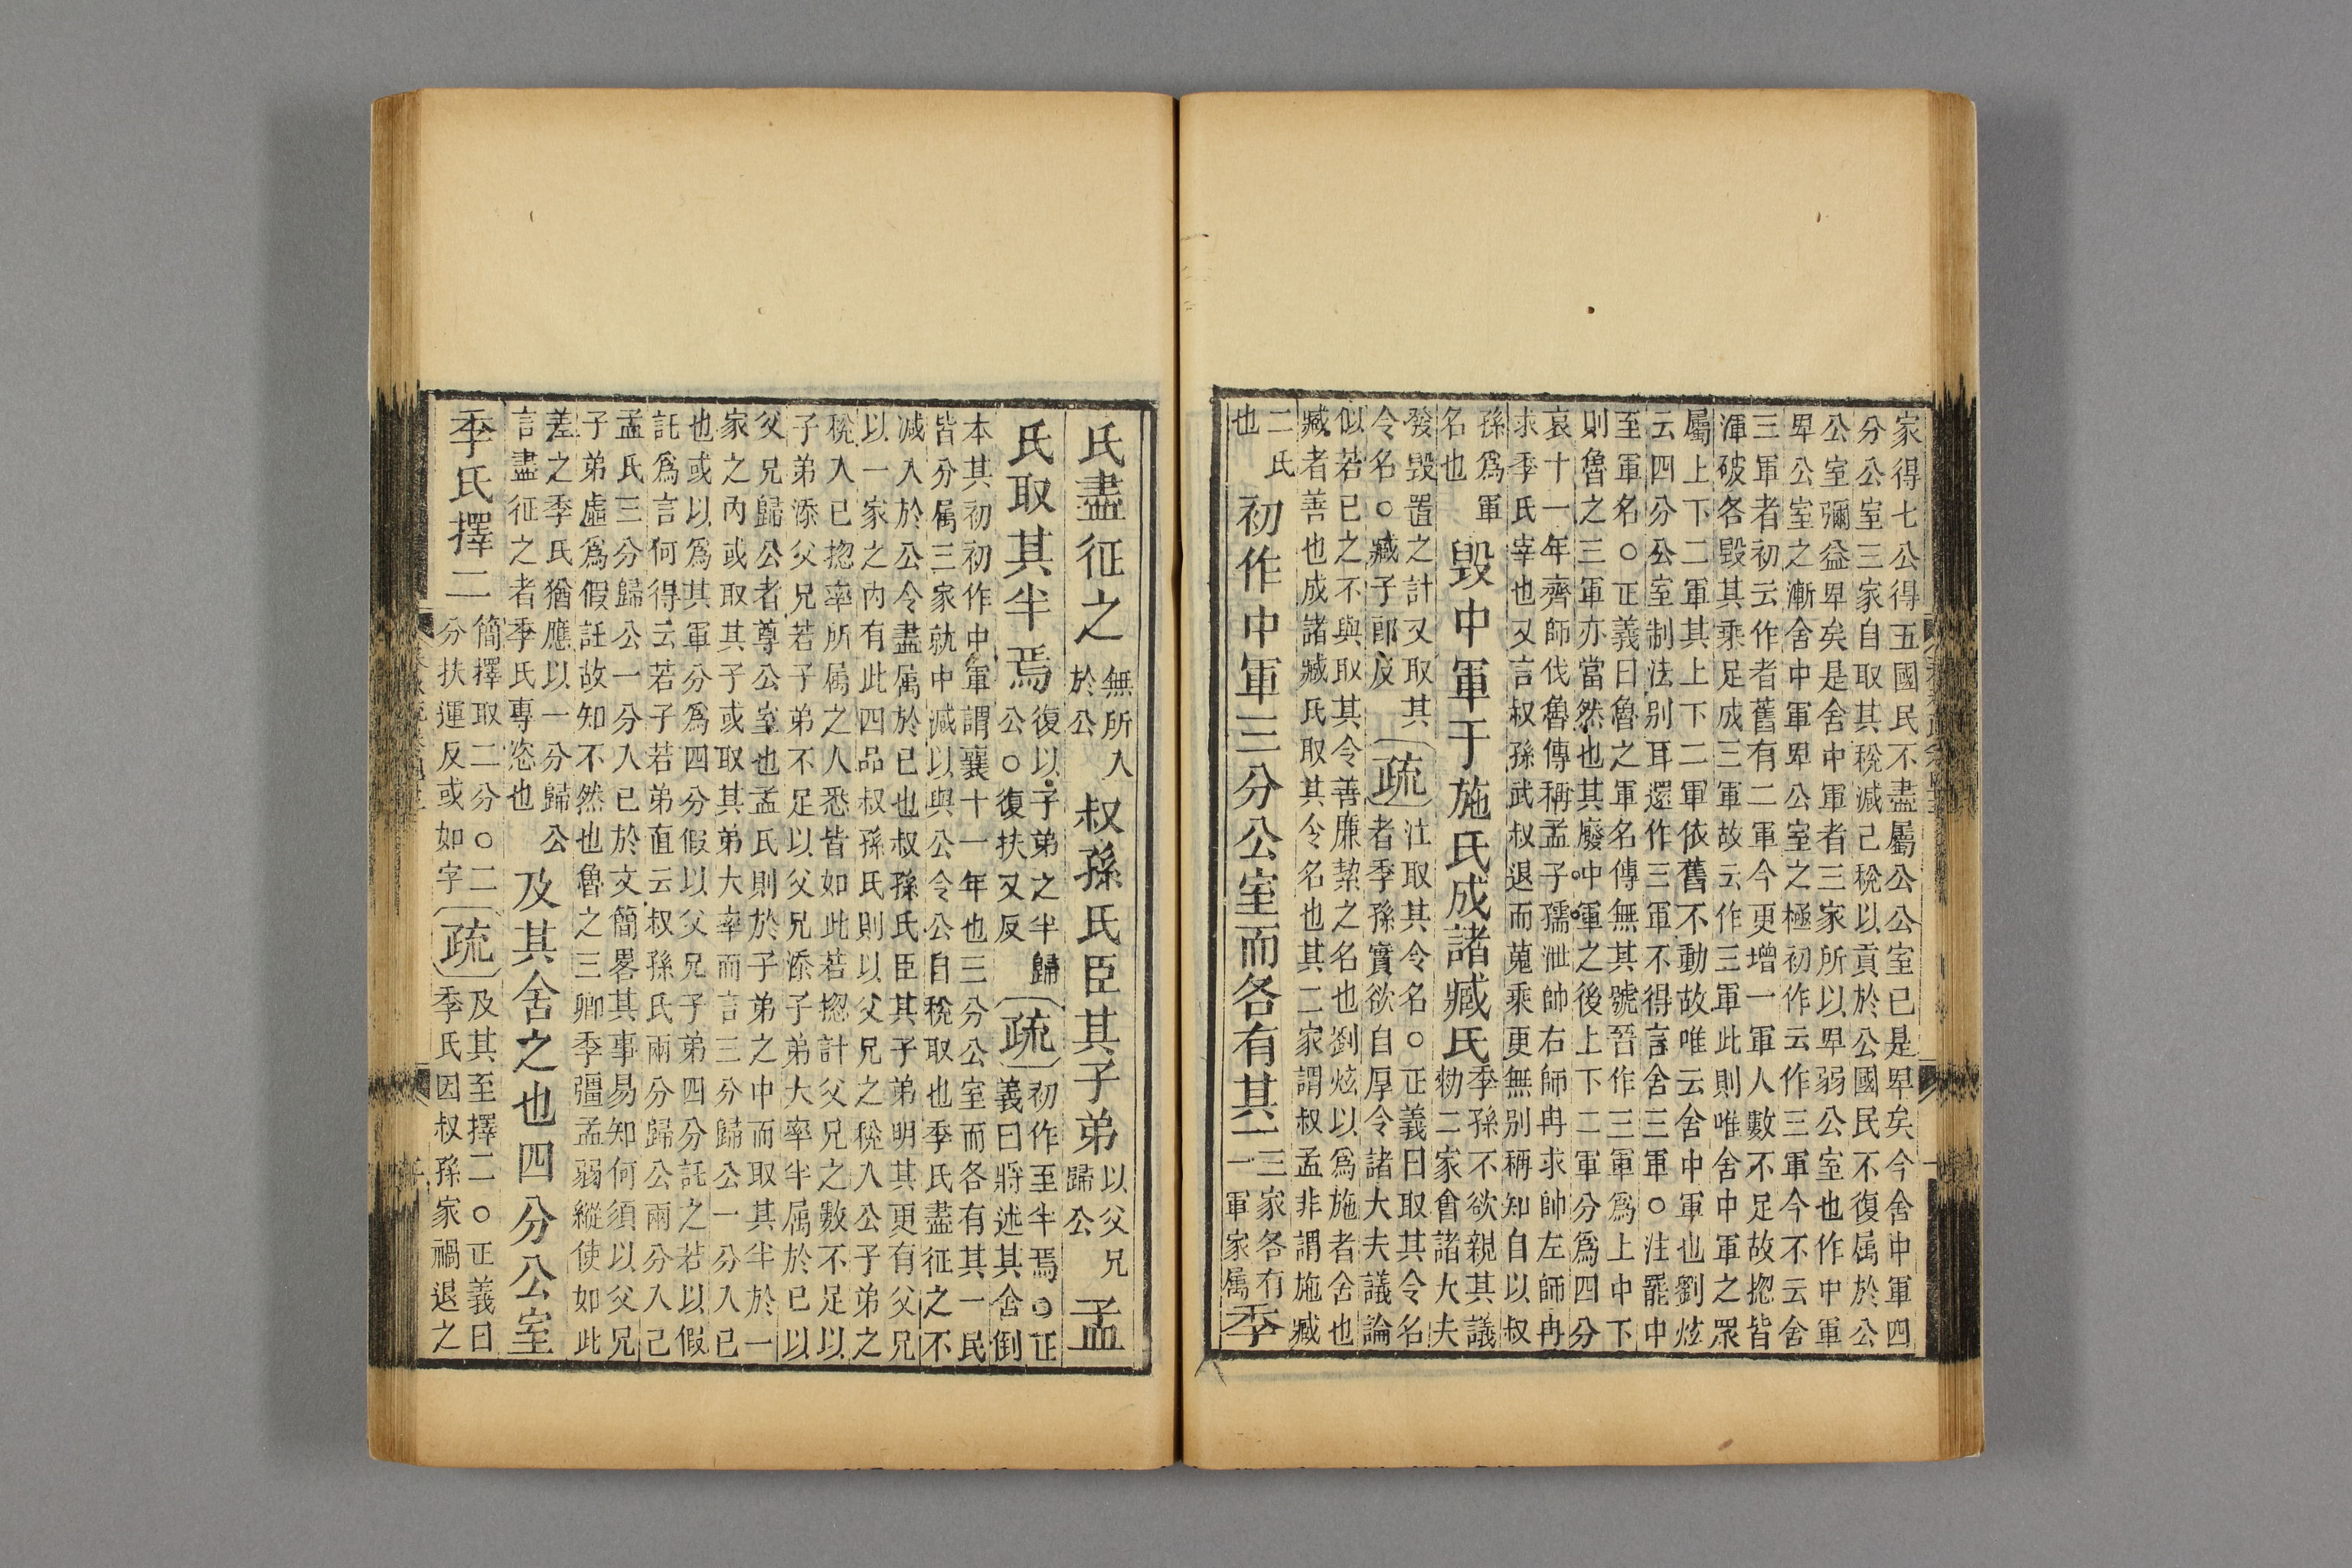 家得七公得五國民不盡屬公公室已是卑矣今舍中軍四
分公室三家自取其稅減已稅以貢於公國民不復属於公
公室彌益卑矣是舍中軍者三家所以卑弱公室也作中軍
卑公室之漸舍中軍卑公室之極初作云作三軍今不云舍
三軍者初云作者舊有二軍今更增一軍人數不足故揔皆
渾破各毀其乘足成三軍故云作三軍此則唯舍中軍之眾
屬上下二軍其上下二軍依舊不動故唯云舍中軍也劉炫
云四分公室制法别耳還作三軍不得言舍三軍○注罷中
至軍名○正義曰魯之軍名傳無其號晉作三軍爲上中下
則魯之三軍亦當然也其廢中軍之後上下二軍分爲四分
哀十一年齊師伐魯傳稱孟子孺泄帥右師冉求帥左師冉
求季氏宰也又言叔孫武叔退而蒐乘更無別稱知自以叔
孫爲軍
名也
毀中軍于施氏成諸臧氏
季孫不欲親其議
勑二家會諸大夫
發毀置之計又取其
令名○臧子郎反
疏
注取其令名○正義曰取其令名
者季孫實欲自厚令諸大夫議論
似若已之不與取其令善廉絜之名也劉炫以爲施者舍也
臧者善也成諸臧氏取其令名也其二家謂叔孟非謂施臧
二氏
也
初作中軍三分公室而各有其一
三家各有
一軍家属
季
氏盡征之
無所入
於公
叔孫氏臣其子弟
以父兄
歸公
孟
氏取其半焉
復以子弟之半歸
公○復扶又反
疏
初作至半焉○正
義曰將述其舍倒
本其初初作中軍謂襄十一年也三分公室而各有其一民
皆分属三家就中減以與公令公自稅取也季氏盡征之不
减入於公令盡属於已也叔孫氏臣其子弟明其更有父兄
以一家之内有此四品叔孫氏則以父兄之稅入公子弟之
稅入已揔率所属之人悉皆如此若揔計父兄之數不足以
子弟添父兄若子弟不足以父兄添子弟大率半属於已以
父兄歸公者尊公室也孟氏則於子弟之中而取其半於一
家之内或取其子或取其弟大率而言三分歸公一分入已
也或以爲其軍分爲四分假以父兄子弟四分託之若以假
託爲言何得云若子若弟直云叔孫氏兩分歸公兩分入己
孟氏三分歸公一分入已於文簡畧其事易知何須以父兄
子弟虛爲假託故知不然也魯之三卿季彊孟弱縱使如此
差之季氏猶應以一分歸公
言盡征之者季氏專恣也
及其舍之也四分公室
季氏擇二
簡擇取二分○二
分扶運反或如字
疏
及其至擇二○正義曰
季氏因叔孫家禍退之